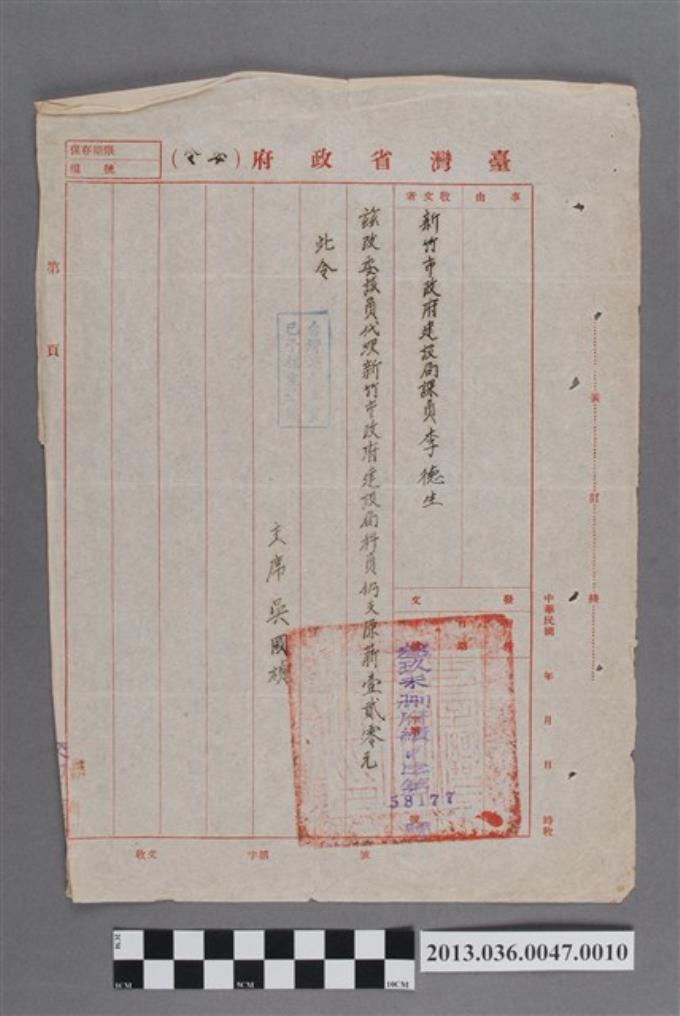 臺灣省政府(令)
保存期限
檔號
事由
收文者
新竹市政府建設局課員李德生
茲改委該員代理新竹市政府建設局科員仍支原薪壹貳零元
此令
主席 吳國楨
發文
58177
第 頁
中華民國 年 月 日 時收
裝 訂 線
收文 字第 號
2013.036.0047.0010
1CM
5CM
10CM